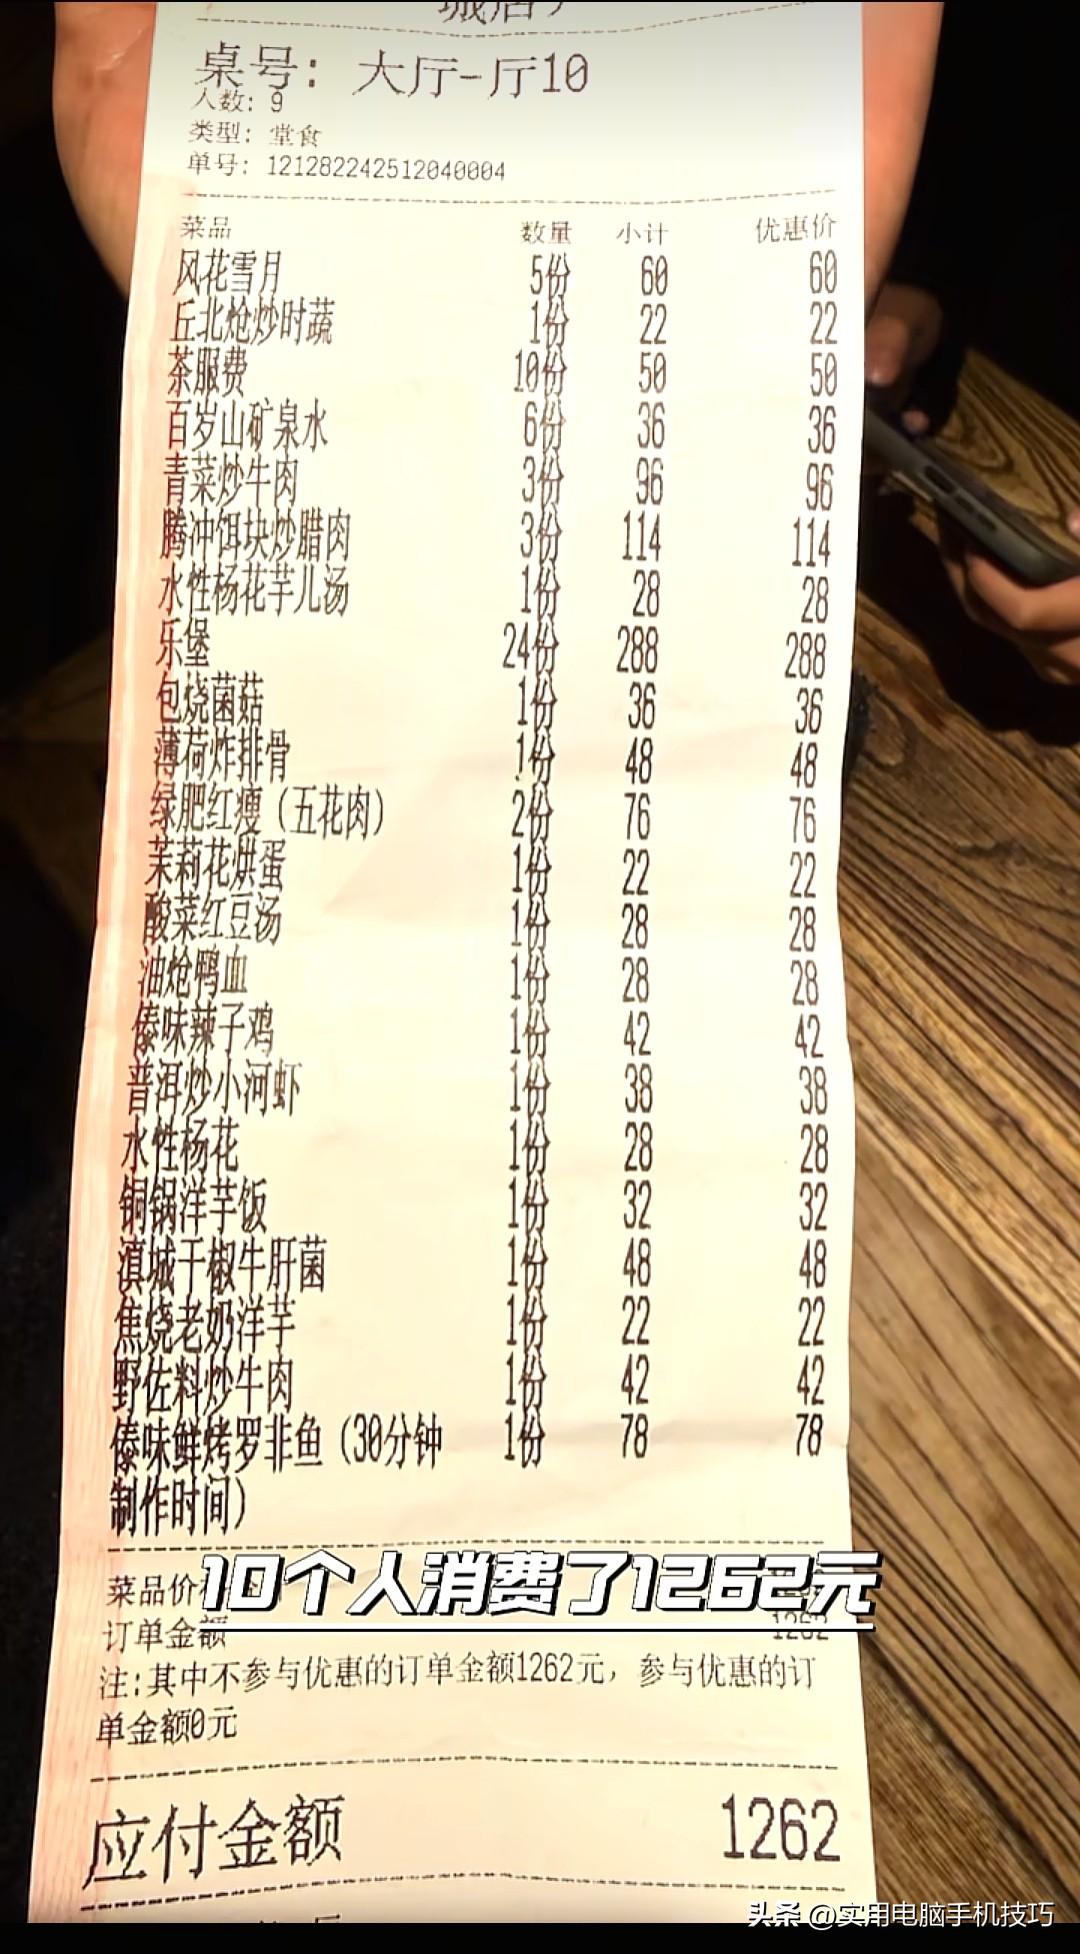 桌号: 大厅-厅10
人数: 9
类型: 堂食
单号: 121282242512040004
菜品 数量 小计 优惠价
风花雪月 5份 60 60
丘北炝炒时蔬 1份 22 22
茶服费 10份 50 50
百岁山矿泉水 6份 36 36
青菜炒牛肉 3份 96 96
腾冲饵块炒腊肉 3份 114 114
水性杨花芋儿汤 1份 28 28
乐堡 24份 288 288
包烧菌菇 1份 36 36
薄荷炸排骨 1份 48 48
绿肥红瘦(五花肉) 2份 76 76
茉莉花烘蛋 1份 22 22
酸菜红豆汤 1份 28 28
油炝鸭血 1份 28 28
傣味辣子鸡 1份 42 42
普洱炒小河虾 1份 38 38
水性杨花 1份 28 28
铜锅洋芋饭 1份 32 32
滇城干椒牛肝菌 1份 48 48
焦烧老奶洋芋 1份 22 22
野佐料炒牛肉 1份 42 42
傣味鲜烤罗非鱼(30分钟 1份 78 78
制作时间)
菜品价
10个人消费了1262元
订单金额 1262
注:其中不参与优惠的订单金额1262元,参与优惠的订
单金额0元
应付金额 1262
头条 @实用电脑手机技巧